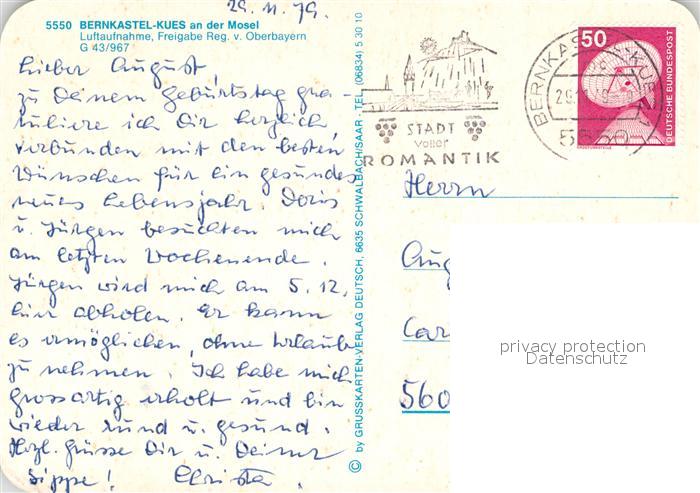 29. 11. 79.
5550 BERNKASTEL-KUES an der Mosel
Luftaufnahme, Freigabe Reg. v. Oberbayern
G 43/967
Lieber August,
zu Deinem Geburtstag gra-
tuliere ich Dir herzlich,
verbunden mit den besten
Wünschen für ein gesundes
neues Lebensjahr. Doris
u. Jürgen besuchten mich
am letzten Wochenende.
Jürgen wird mich am 5.12.
hier abholen. Er kann
es ermöglichen, ohne Urlaub
zu nehmen. Ich habe mich
grossartig erholt und bin
wieder rund u. gesund.
Herzl. Grüsse Dir u. Deiner
Sippe! Christa.
© by GRUSSKARTEN-VERLAG DEUTSCH, 6635 SCHWALBACH/SAAR · TEL. (06834) 5 30 10
STADT
voller
ROMANTIK
BERNKASTEL-KUES
5550
50
DEUTSCHE BUNDESPOST
Herrn
Aug
Car
560
privacy protection
Datenschutz